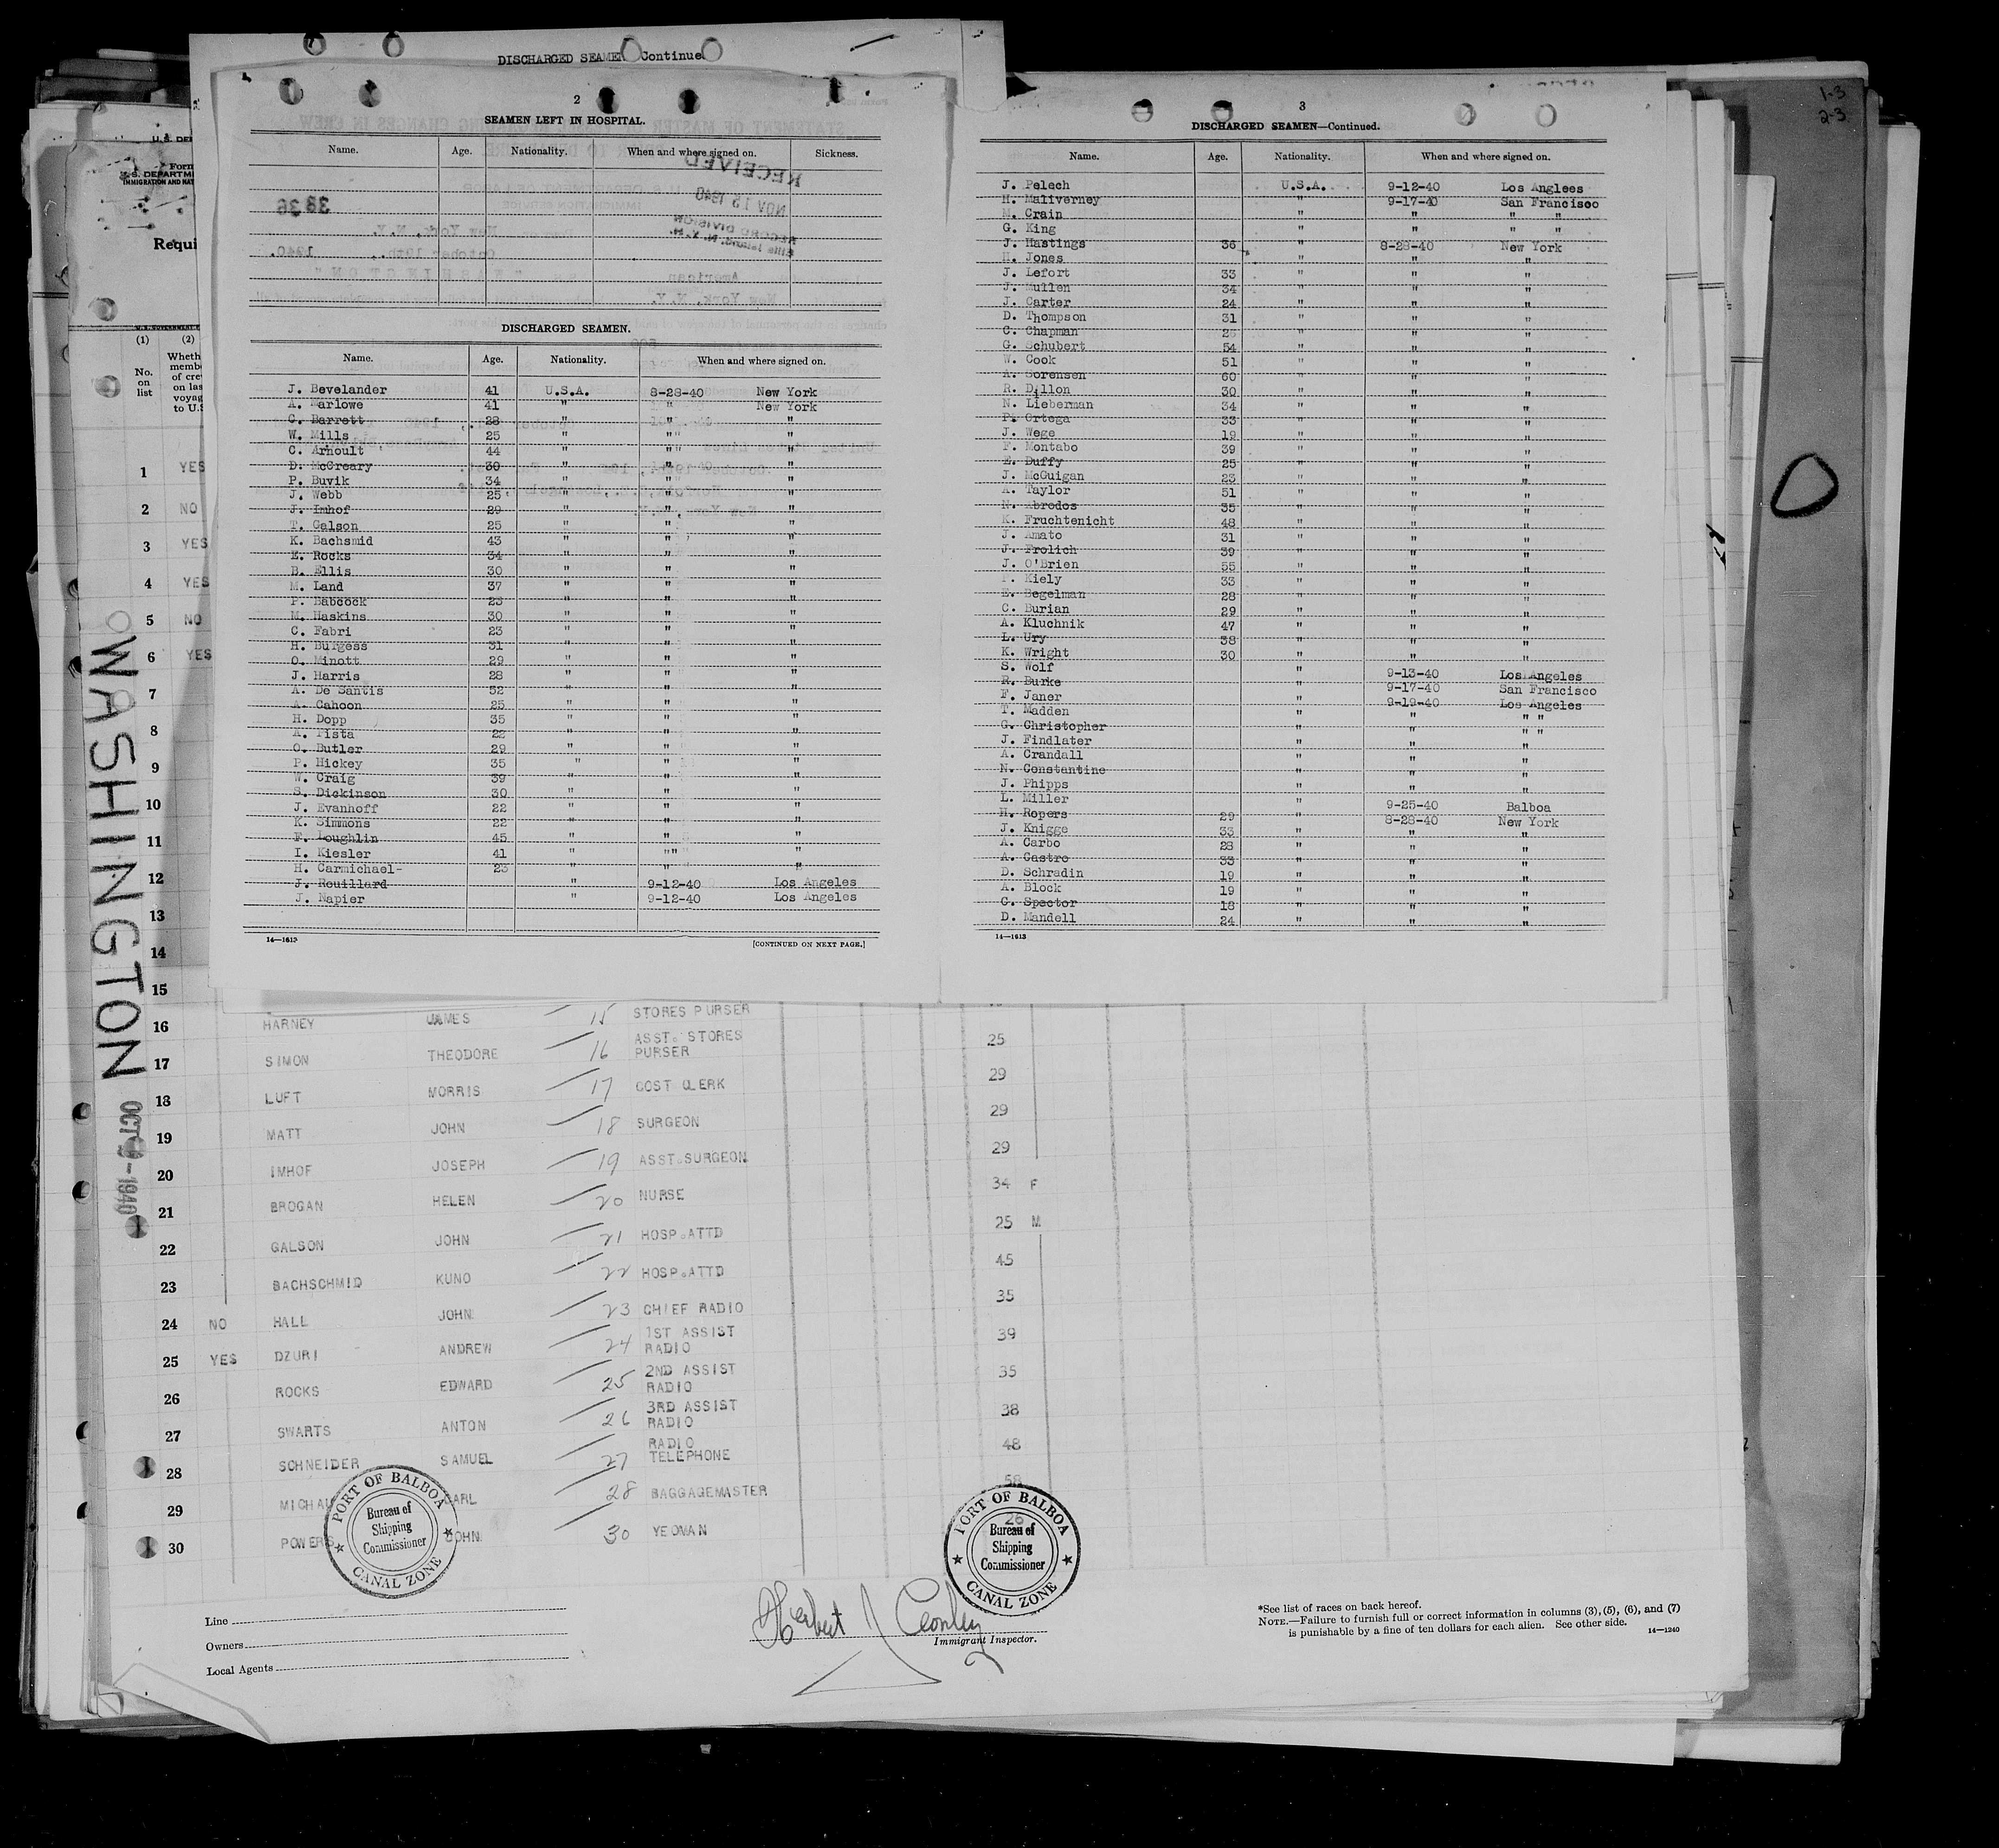 DISCHARGED SEAMEN Continue
2
SEAMEN LEFT IN HOSPITAL.
Name. Age. Nationality. When and where signed on. Sickness.
RECEIVED
NOV 15 1940
RECORD DIVISION
Ellis Island, N.Y.H.
3836
DISCHARGED SEAMEN.
Name. Age. Nationality. When and where signed on.
J. Bevelander 41 U.S.A. 8-28-40 New York
A. Marlowe 41 " " New York
C. Barrett 28 " " "
W. Mills 25 " " "
C. Arnoult 44 " " "
D. McCreary 30 " " "
P. Buvik 34 " " "
J. Webb 25 " " "
J. Imhof 29 " " "
T. Galson 25 " " "
K. Bachsmid 43 " " "
E. Rocks 34 " " "
B. Ellis 30 " " "
M. Land 37 " " "
P. Babcock 23 " " "
M. Haskins 30 " " "
C. Fabri 23 " " "
H. Burgess 31 " " "
O. Minott 29 " " "
J. Harris 28 " " "
A. De Santis 52 " " "
A. Cahoon 25 " " "
H. Dopp 35 " " "
A. Fista 22 " " "
O. Butler 29 " " "
P. Hickey 35 " " "
W. Craig 39 " " "
S. Dickinson 30 " " "
J. Evanhoff 22 " " "
K. Simmons 22 " " "
F. Loughlin 45 " " "
I. Kiesler 41 " " "
H. Carmichael- 23 " " "
J. Rouillard " 9-12-40 Los Angeles
J. Napier " 9-12-40 Los Angeles
14—1613 [CONTINUED ON NEXT PAGE.]
3
DISCHARGED SEAMEN—Continued.
Name. Age. Nationality. When and where signed on.
J. Pelech U.S.A. 9-12-40 Los Anglees
H. Maliverney " 9-17-40 San Francisco
M. Crain " " " "
G. King " " " "
J. Hastings 36 " 8-28-40 New York
H. Jones " " "
J. Lefort 33 " " "
J. Mullen 34 " " "
J. Carter 24 " " "
D. Thompson 31 " " "
C. Chapman 25 " " "
G. Schubert 54 " " "
W. Cook 51 " " "
A. Sorensen 60 " " "
R. Dillon 30 " " "
N. Lieberman 34 " " "
P. Ortega 33 " " "
J. Wege 19 " " "
F. Montabo 39 " " "
E. Duffy 25 " " "
J. McGuigan 23 " " "
A. Taylor 51 " " "
N. Abrodos 35 " " "
K. Fruchtenicht 48 " " "
J. Amato 31 " " "
J. Frolich 39 " " "
J. O'Brien 55 " " "
Kiely 33 " " "
E. Begelman 28 " " "
C. Burian 29 " " "
A. Kluchnik 47 " " "
L. Ury 38 " " "
K. Wright 30 " " "
S. Wolf " 9-13-40 Los Angeles
R. Burke " 9-17-40 San Francisco
F. Janer " 9-19-40 Los Angeles
T. Madden " " " "
G. Christopher " " " "
J. Findlater " " "
A. Crandall " " "
N. Constantine " " "
J. Phipps " " "
L. Miller " 9-25-40 Balboa
H. Ropers 29 " 8-28-40 New York
J. Knigge 33 " " "
A. Carbo 28 " " "
A. Castro 33 " " "
D. Schradin 19 " " "
A. Block 19 " " "
C. Spector 18 " " "
D. Mandell 24 " " "
14—1613
1-3
2-3
U.S. DEP
Form
U.S. DEPARTM
IMMIGRATION AND NAT
Requi
(1) (2)
No. on list
Wheth
memb
of cre
on las
voyag
to U.S
1 YES
2 NO
3 YES
4 YES
5 NO
6 YES
7
8
9
10
11
12
13
14
15
WASHINGTON
OCT 9-1940
16 HARNEY JAMES 15 STORES PURSER
17 SIMON THEODORE 16 ASST. STORES PURSER 25
18 LUFT MORRIS 17 COST CLERK 29
19 MATT JOHN 18 SURGEON 29
20 IMHOF JOSEPH 19 ASST.SURGEON 29
21 BROGAN HELEN 20 NURSE 34 F
22 GALSON JOHN 21 HOSP.ATTD 25 M
23 BACHSCHMID KUNO 22 HOSP.ATTD 45
24 NO HALL JOHN 23 CHIEF RADIO 35
25 YES DZURI ANDREW 24 1ST ASSIST RADIO 39
26 ROCKS EDWARD 25 2ND ASSIST RADIO 35
27 SWARTS ANTON 26 3RD ASSIST RADIO 38
28 SCHNEIDER SAMUEL 27 RADIO TELEPHONE 48
29 MICHAU CARL 28 BAGGAGEMASTER 58
30 POWERS JOHN 30 YEOMAN 26
PORT OF BALBOA
Bureau of
Shipping
Commissioner
CANAL ZONE
PORT OF BALBOA
Bureau of
Shipping
Commissioner
CANAL ZONE
Line
Owners
Local Agents
Herbert J
Immigrant Inspector.
*See list of races on back hereof.
NOTE.—Failure to furnish full or correct information in columns (3), (5), (6), and (7)
is punishable by a fine of ten dollars for each alien. See other side. 14—1240